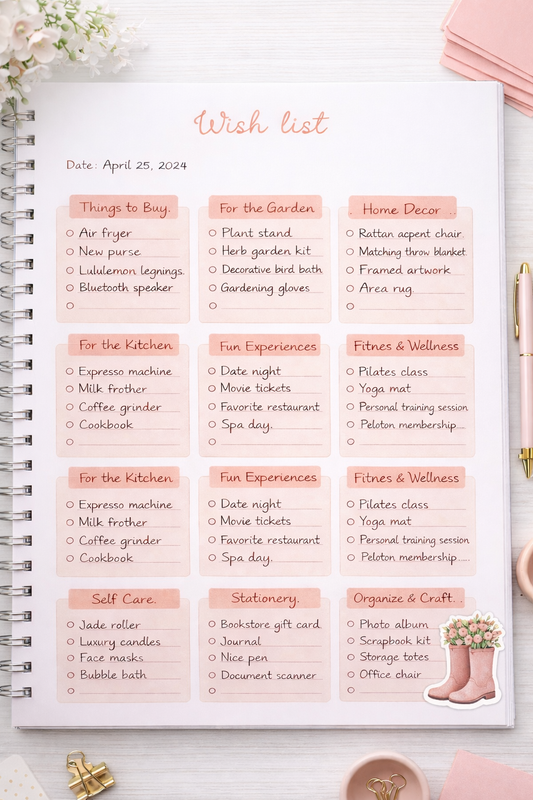 Wish list
Date: April 25, 2024
Things to Buy.
Air fryer
New purse
Lululemon legnings.
Bluetooth speaker
For the Garden
Plant stand
Herb garden kit
Decorative bird bath
Gardening gloves
Home Decor
Rattan acpent chair
Matching throw blanket
Framed artwork
Area rug
For the Kitchen
Expresso machine
Milk frother
Coffee grinder
Cookbook
Fun Experiences
Date night
Movie tickets
Favorite restaurant
Spa day.
Fitnes & Wellness
Pilates class
Yoga mat
Personal training session
Peloton membership
For the Kitchen
Expresso machine
Milk frother
Coffee grinder
Cookbook
Fun Experiences
Date night
Movie tickets
Favorite restaurant
Spa day.
Fitnes & Wellness
Pilates class
Yoga mat
Personal training session
Peloton membership
Self Care.
Jade roller
Luxury candles
Face masks
Bubble bath
Stationery.
Bookstore gift card
Journal
Nice pen
Document scanner
Organize & Craft.
Photo album
Scrapbook kit
Storage totes
Office chair